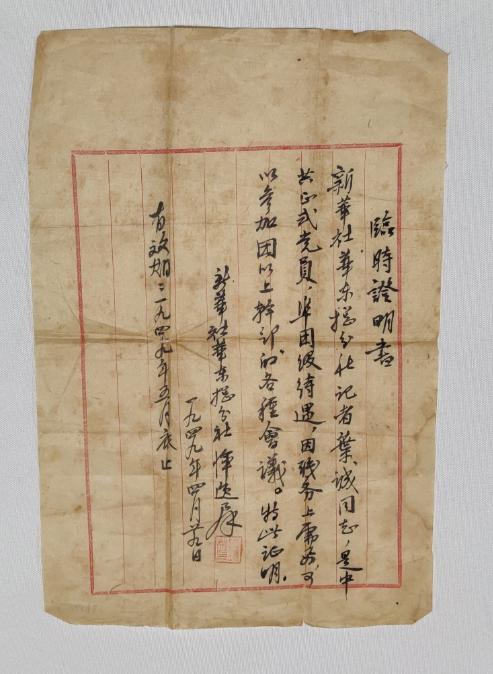 臨時證明書
新華社華东總分社记者葉诚同志，是中
共正式党員，準团级待遇，因职务上需要，可
以参加团以上幹部的各種會議。特此证明。
新華社華东總分社 恽逸羣
一九四九年四月廿九日
有效期：一九四九年五月底止